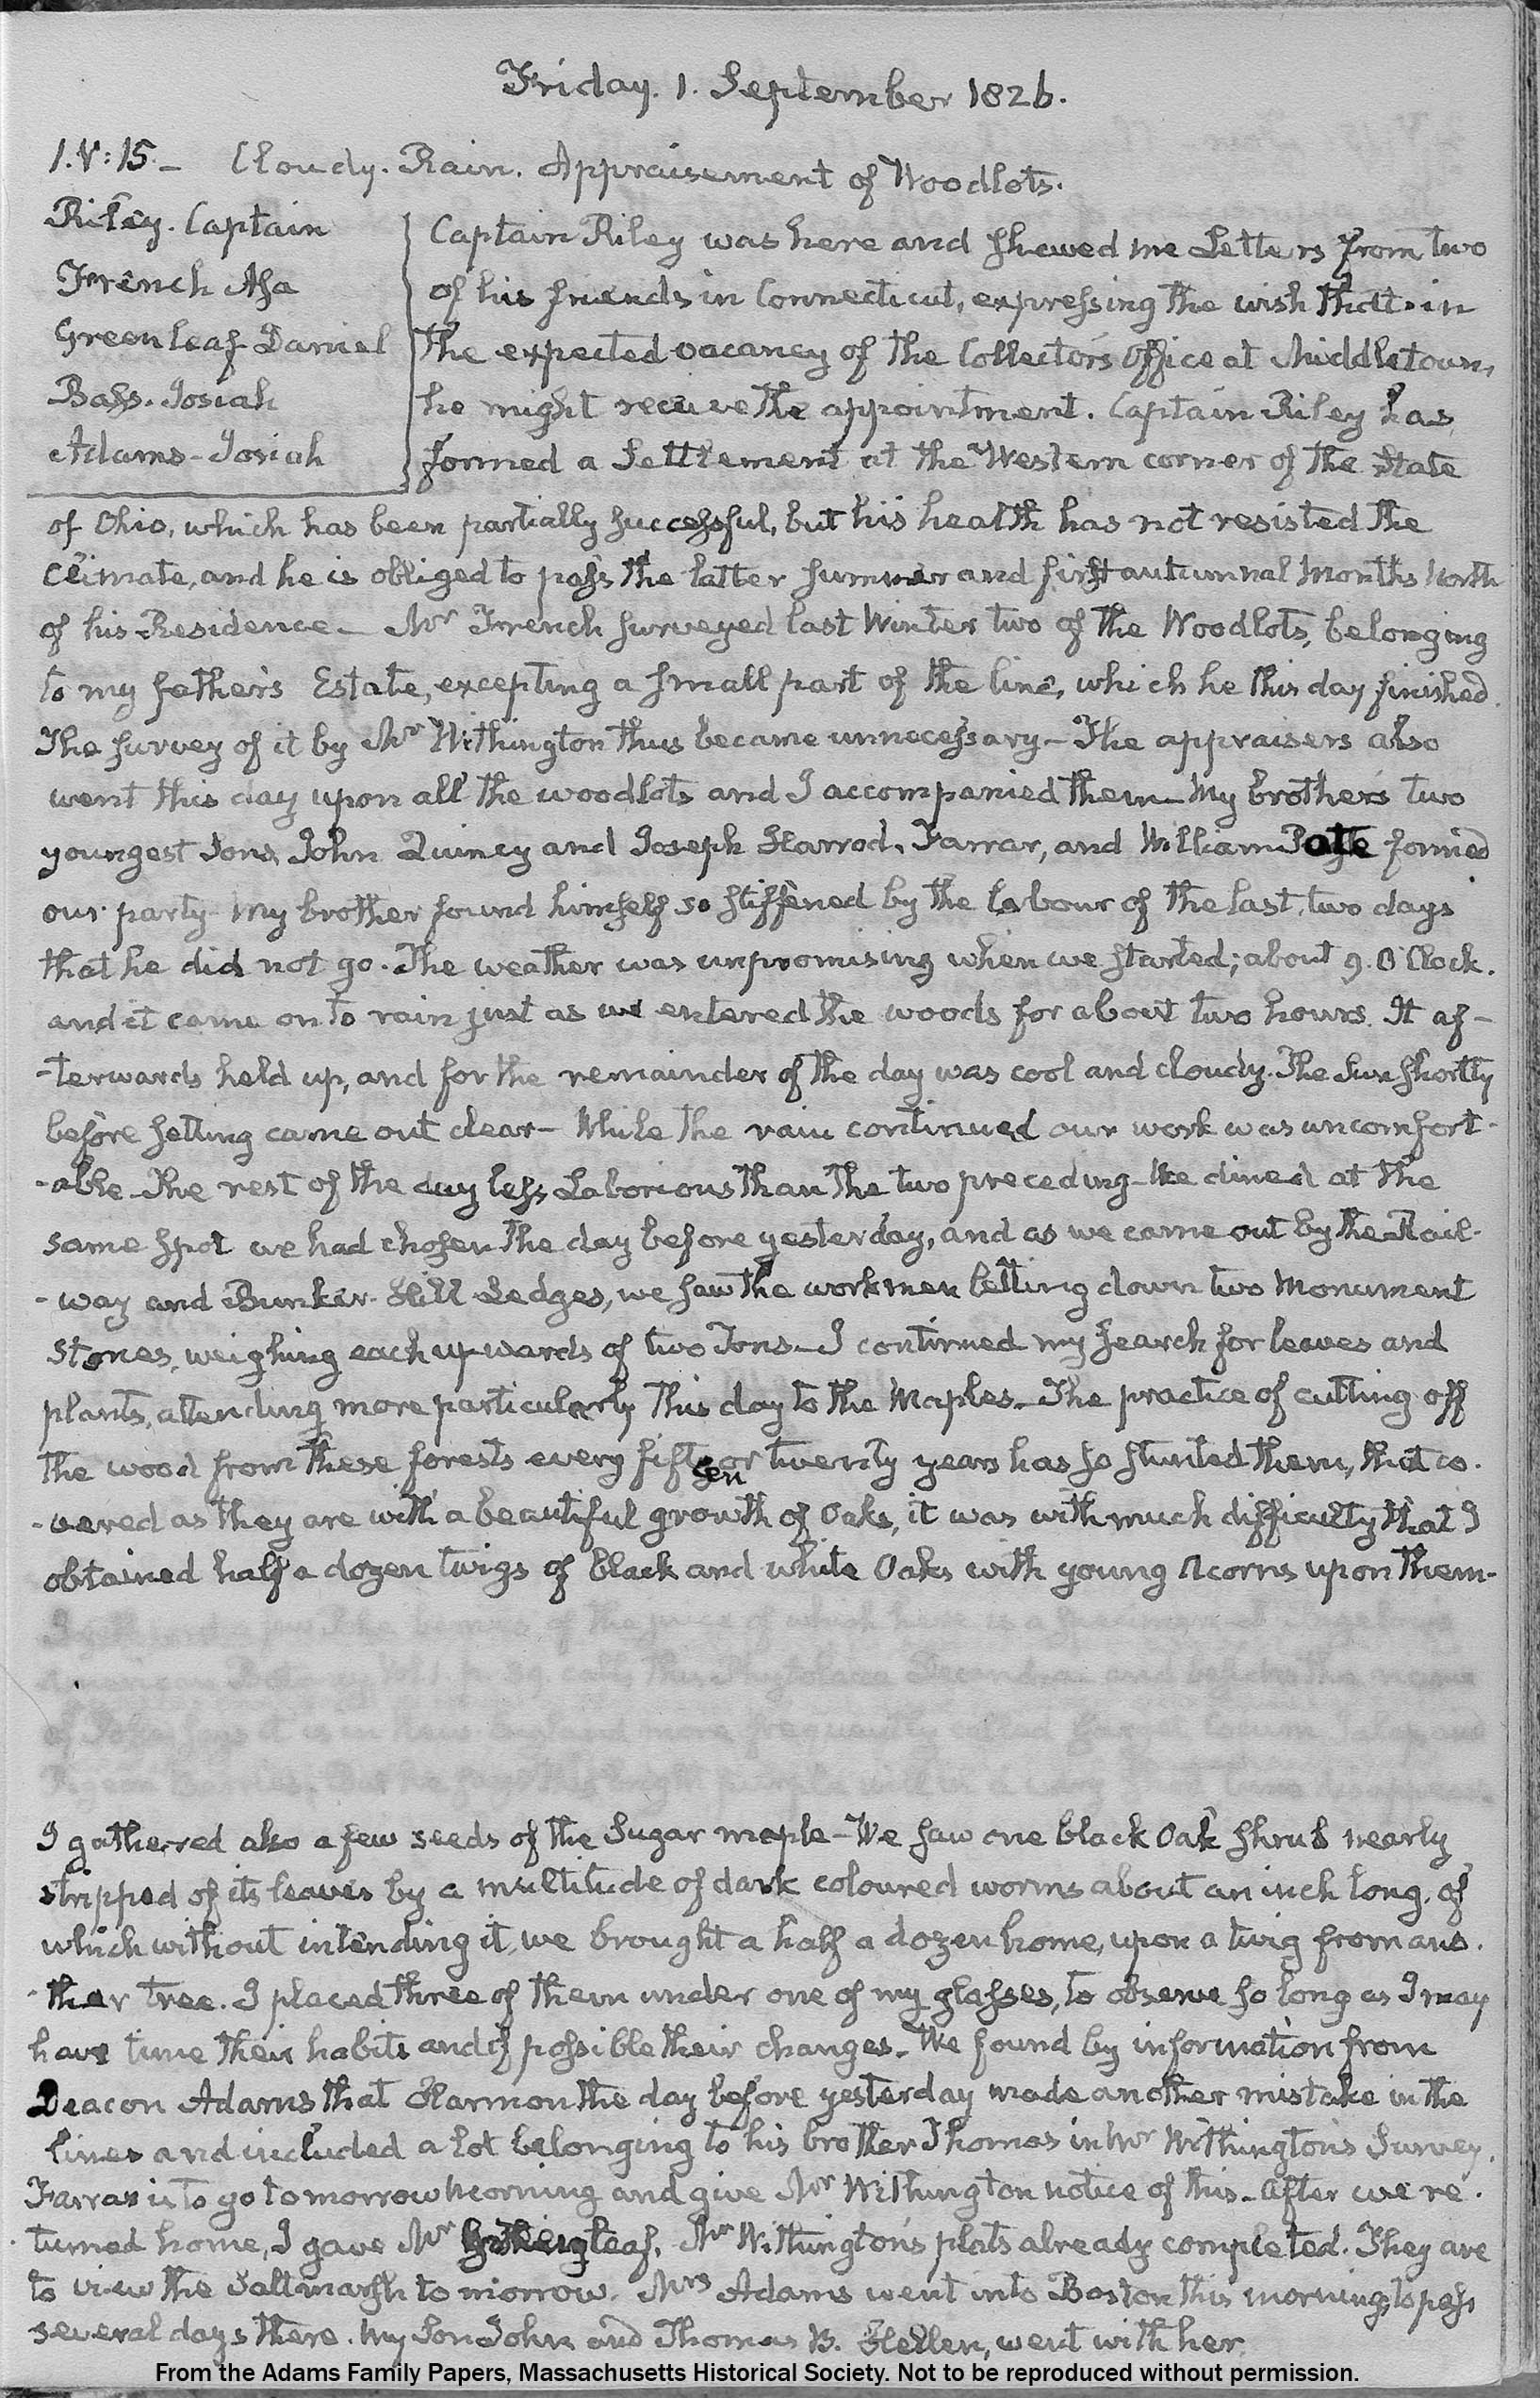 Friday. 1. September 1826.
1. V: 15._ Cloudy. Rain. Appraisement of Woodlots.
Riley. Captain
French Asa
Greenleaf Daniel
Bass. Josiah
Adams - Josiah
Captain Riley was here and shewed me Letters from two
of his friends in Connecticut, expressing the wish that in
the expected vacancy of the Collector's Office at Middletown,
he might receive the appointment. Captain Riley has
formed a Settlement at the Western corner of the State
of Ohio, which has been partially successful, but his health has not resisted the
Climate, and he is obliged to pass the latter summer and first autumnal Months North
of his Residence_ Mr French surveyed last Winter two of the Woodlots, belonging
to my father's Estate, excepting a small part of the line, which he this day finished.
The survey of it by Mr Withington thus became unnecessary_ The appraisers also
went this day upon all the woodlots and I accompanied them_ My brother's two
youngest Sons, John Quincy and Joseph Harrod, Farrar, and William formed
our party- My brother found himself so stiffened by the labour of the last two days
that he did not go. The weather was unpromising when we started; about 9. O'Clock.
and it came on to rain just as we entered the woods for about two hours. It af-
-terwards held up, and for the remainder of the day was cool and cloudy. The Sun shortly
before setting came out clear_ While the rain continued our work was uncomfort-
-able_ The rest of the day less Laborious than the two preceding_ We dined at the
same spot we had chosen the day before yesterday, and as we came out by the Rail-
-way and Bunker-Hill Ledges, we saw the workmen letting down two Monument
stones, weighing each upwards of two Tons_ I continued my search for leaves and
plants, attending more particularly this day to the Maples_ The practice of cutting off
the wood from these forests every fifteen or twenty years has so stunted them, that co-
-vered as they are with a beautiful growth of Oaks, it was with much difficulty that I
obtained half a dozen twigs of black and white Oaks with young Acorns upon them-
I gathered also a few seeds of the Sugar maple_ We saw one black Oak shrub nearly
stripped of its leaves by a multitude of dark coloured worms about an inch long, of
which without intending it, we brought a half a dozen home, upon a twig from ano-
-ther tree. I placed three of them under one of my glasses, to observe so long as I may
have time their habits and if possible their changes_ We found by information from
Deacon Adams that Harmon the day before yesterday made another mistake in the
lines and included a lot belonging to his brother Thomas in Mr Withington's Survey.
Farrar is to go tomorrow morning and give Mr Withington notice of this_ After we re-
-turned home, I gave Mr Greenleaf, Mr Withington's plats already completed. They are
to view the Saltmarsh to morrow. Mrs Adams went into Boston this morning, to pass
several days there. My Son John and Thomas B. Hellen, went with her.
From the Adams Family Papers, Massachusetts Historical Society. Not to be reproduced without permission.